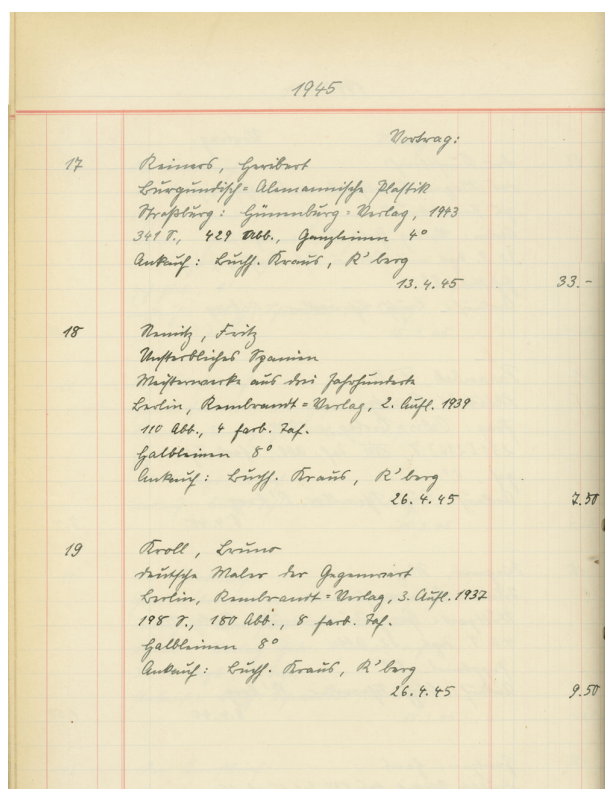 1945
Vortrag:
17 Reiners, Heribert
Burgundisch=Alemannische Plastik
Straßburg: Hünenburg=Verlag, 1943
341 S., 429 Abb., Ganzleinen 4°
Ankauf: Buchh. Kraus, R'berg
13.4.45 33.-
18 Nemitz, Fritz
Unsterbliches Spanien
Meisterwerke aus drei Jahrhunderte
Berlin, Rembrandt=Verlag, 2. Aufl. 1939
110 Abb., 4 farb. Taf.
Halbleinen 8°
Ankauf: Buchh. Kraus, R'berg
26.4.45 7.50
19 Kroll, Bruno
Deutsche Maler der Gegenwart
Berlin, Rembrandt=Verlag, 3. Aufl. 1937
198 S., 180 Abb., 8 farb. Taf.
Halbleinen 8°
Ankauf: Buchh. Kraus, R'berg
26.4.45 9.50